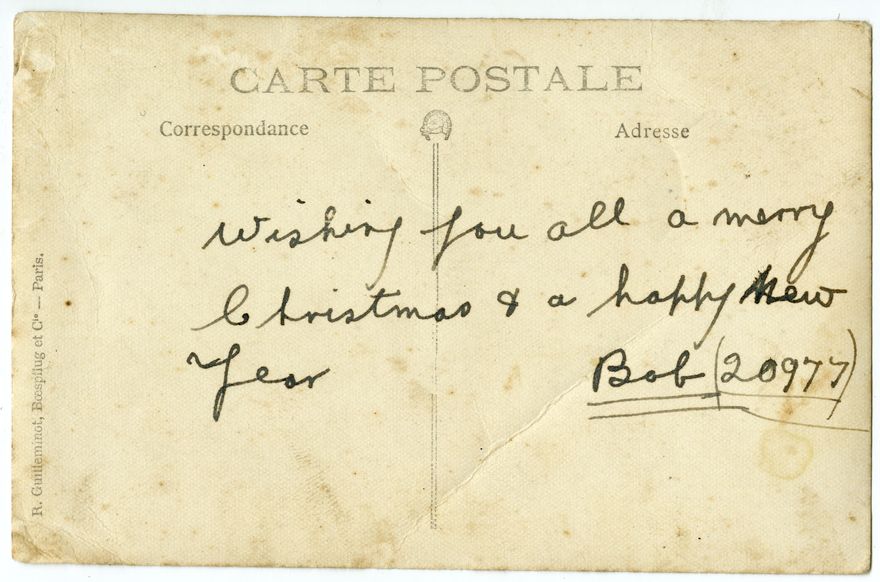 CARTE POSTALE
Correspondance
Adresse
Wishing you all a merry
Christmas & a happy New
Year Bob (20977)
R. Guilleminot, Bœspflug et Cie — Paris.